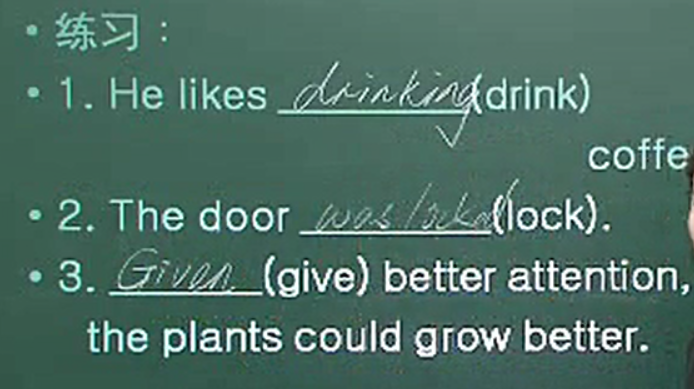 • 练习：
• 1. He likes drinking (drink)
coffe
• 2. The door was locked (lock).
• 3. Given (give) better attention,
the plants could grow better.